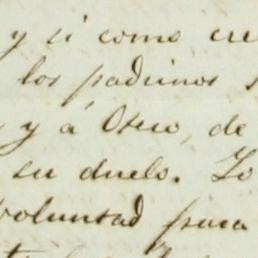 y si como cre
los padrinos
y á Otero, de
su duelo. Lo
voluntad para